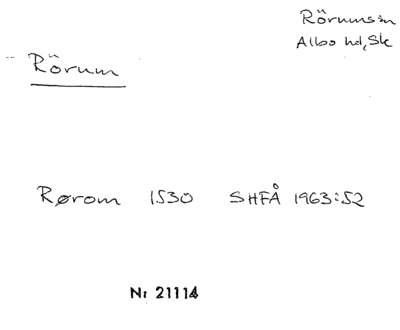 Rörums sn
Albo hd, Sk
Rörum
Rørom 1530 SHFÅ 1963:52
Nr 21114